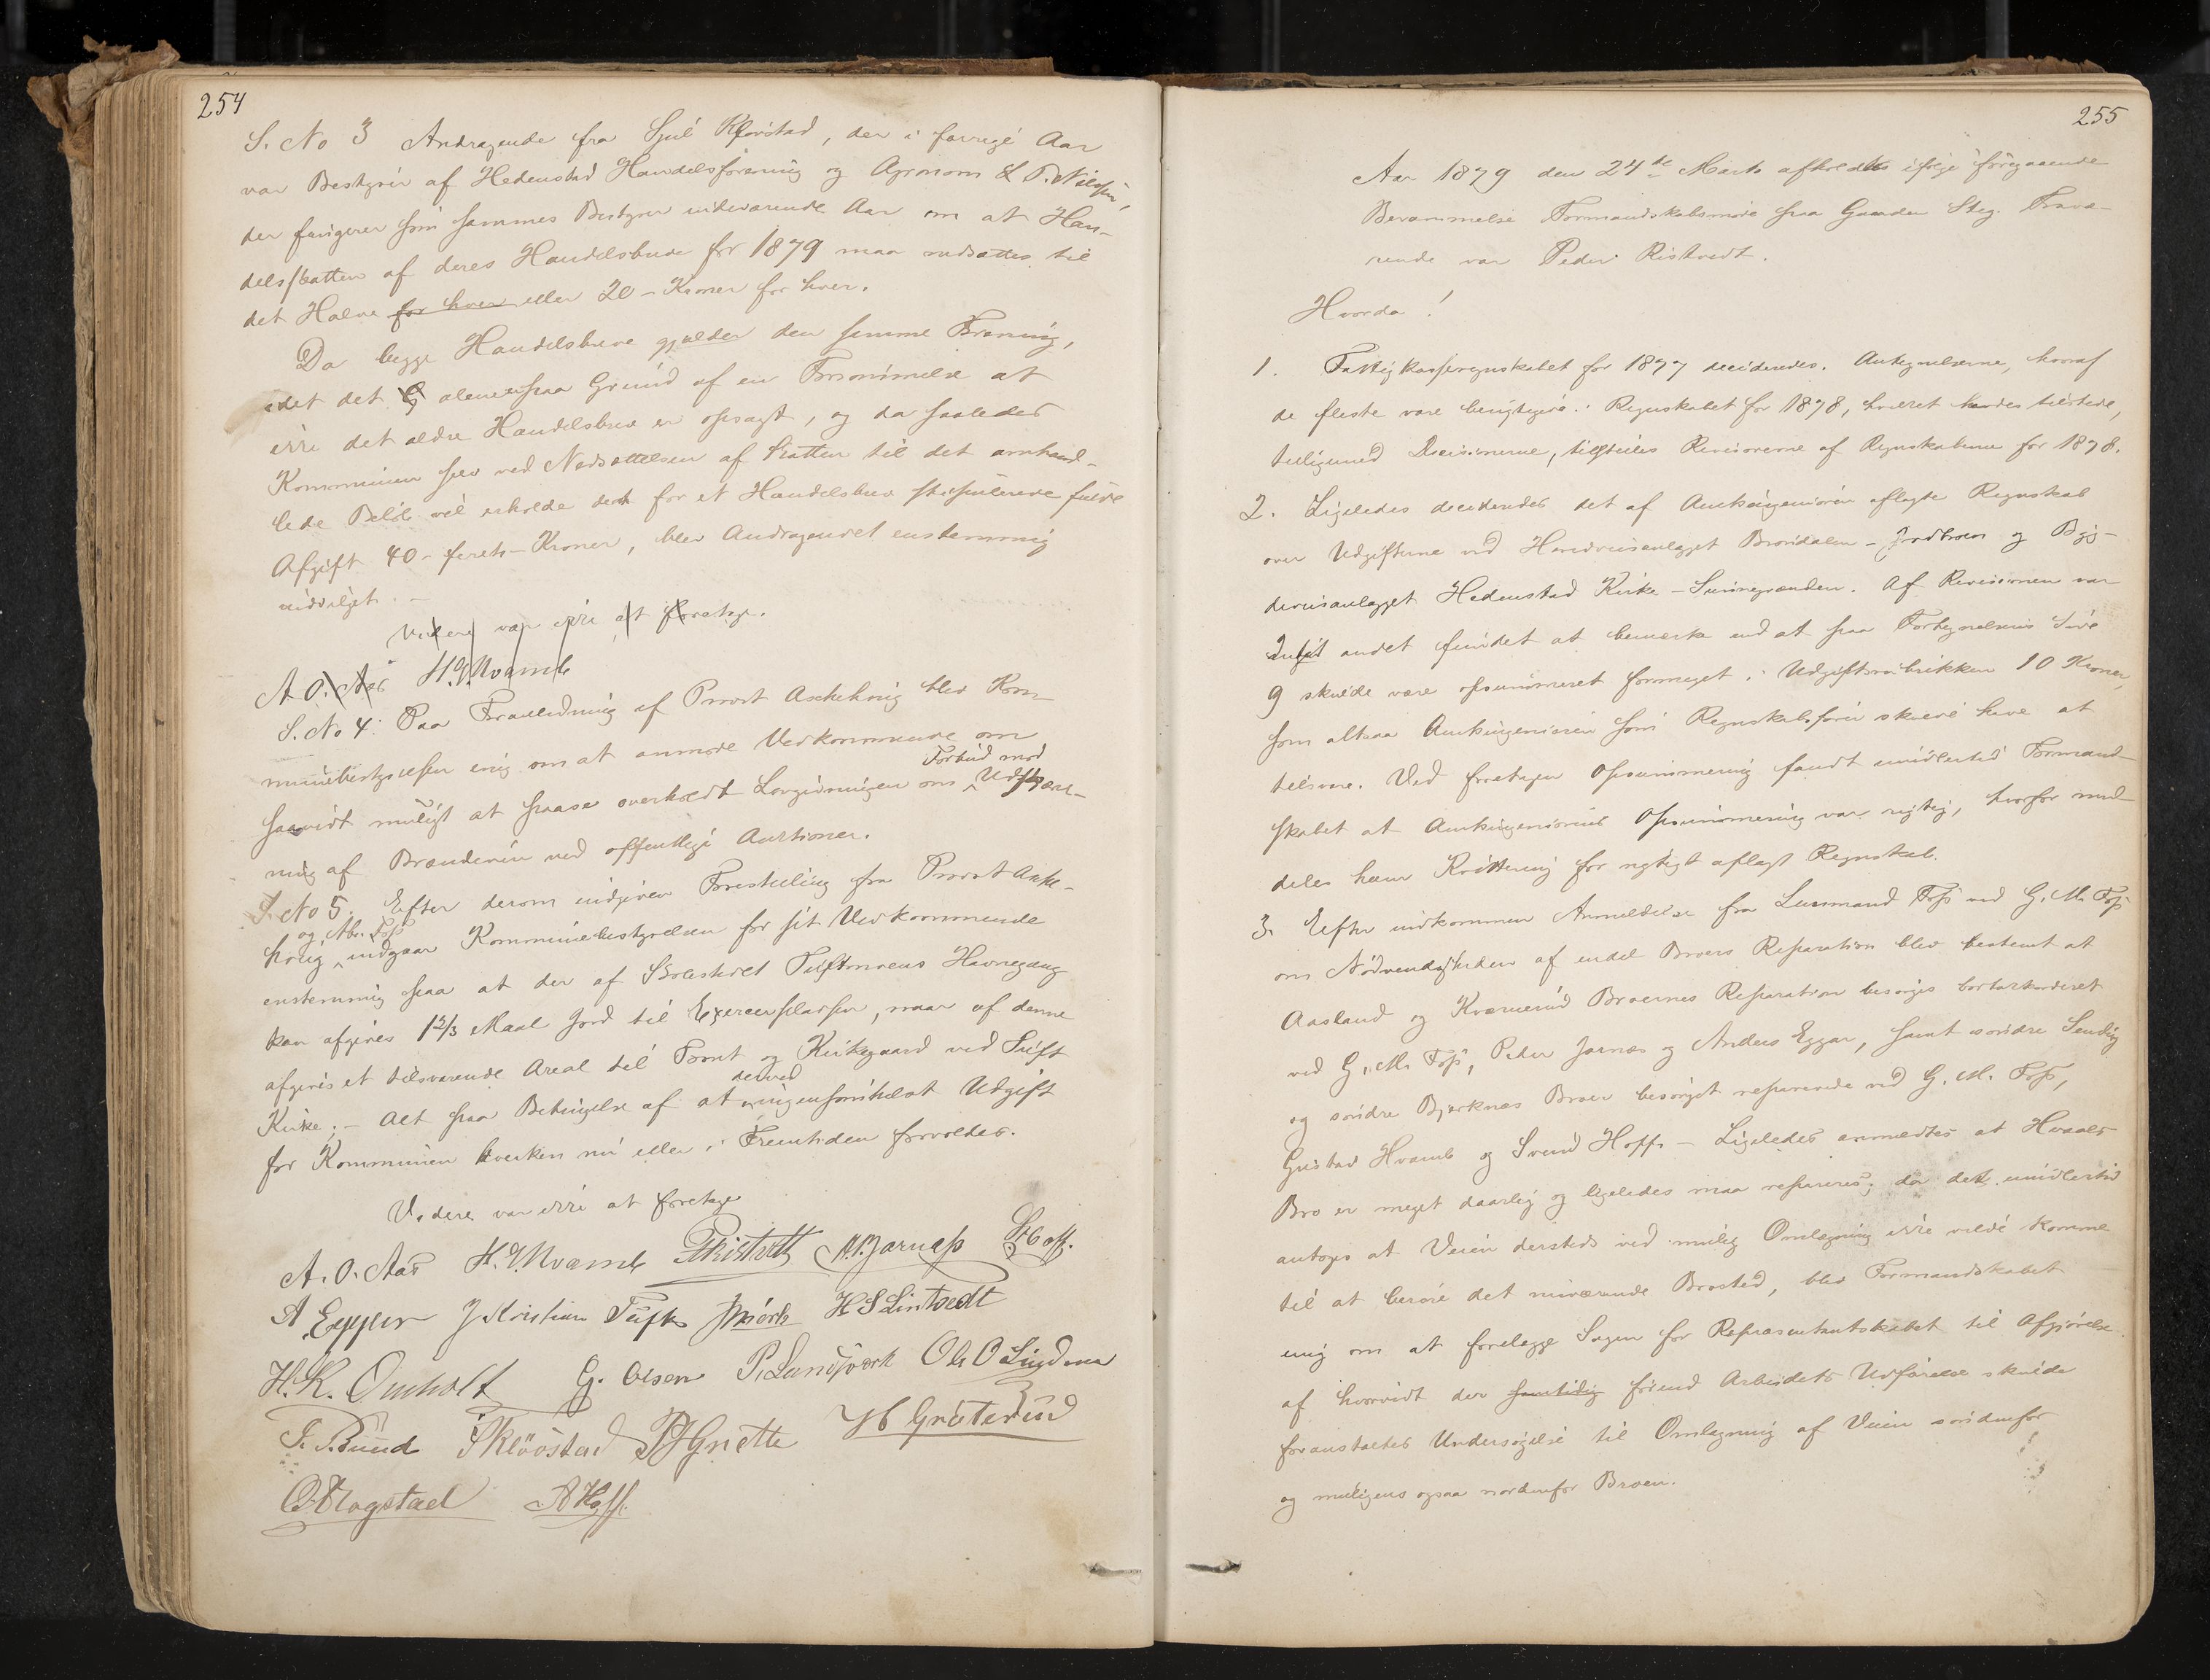 254
S. No 3 Andragende fra Sjul Kløvstad, der i forrige Aar
var Bestyrer af Hedenstad Handelsforening og Agronom L. P. Nielsen,
der fungerer som sammes Bestyrer indeværende Aar om at Han-
delsskatten af deres Handelsbreve for 1879 maa nedsættes til
det Halve for hver eller 20 - Kroner for hver.
Da begge Handelsbreve gjælder den samme Forening,
idet det alene paa Grund af en Forsømmelse at
ikke det ældre Handelsbrev er opsagt, og da saaledes
Kommunen selv ved Nedsættelsen af Skatten til det omhand-
lede Beløb vil erholde den for et Handelsbrev stipulerede fulde
Afgift 40 - førti - Kroner, blev Andragendet enstemmig
indvilget. -
Videre var ikke at foretage.
A. O. Aas H. J. Hvamb
S. No 4: Paa Foranledning af Provst Aschehoug blev Kom-
munebestyrelsen enig om at anmode Vedkommende om
saavidt muligt at paase overholdt Lovgivningen om Forbud mod Udskjænk-
ning af Brændevin ved offentlige Auktioner.
S. No 5. Efter derom indgiven Forestilling fra Provst Asche-
houg og Abr. Foss indgaar Kommunebestyrelsen for sit Vedkommende
enstemmig paa at der af Skolesholt Tuftmoens Havnegang
kan afgives 1 2/3 Maal Jord til Exercerpladsen, naar af denne
afgives et tilsvarende Areal til Tomt og Kirkegaard ved Tuft
Kirke; - Alt paa Betingelse af at derved ingensomhelst Udgift
for Kommunen hverken nu eller i Fremtiden forvoldes.
Videre var ikke at foretage
A. O. Aas H. J. Hvamb P Ristvedt A. P. Jarnæss S Hoff.
A Eggar J Kristian Tufte H S Lintvedt
H. K. Omholt G. Olsen P. Landsværk Ole O Lindem
T. Bruud S Kløvstad P H Grette H Gruterud
O Flagstad A Hoff.
255
Aar 1879 den 24de Marts afholdtes ifølge foregaaende
Berammelse Formandskabsmøde paa Gaarden Steg. Fravæ-
rende var Peder Ristvedt.
Hvorda!
1. Fattigkasseregnskabet for 1877 decideredes. Antegnelserne, hvoraf
de fleste vare berigtigede. Regnskabet for 1878, hvilket havdes tilstede,
tilligemed Decisionerne, tilstilles Revisorerne af Regnskaberne for 1878.
2. Ligeledes decideredes det af Amtsingeniøren aflagte Regnskab
over Udgifterne ved Hovedveisanlægget Brosdalen - Jordbroen og Byg-
deveisanlægget Hedenstad Kirke - Sunnegrænden. Af Revisionen var
Intet andet fundet at bemærke end at paa Fortegnelsens Side
9 skulde være opsummeret formeget i Udgiftsrubrikken 10 Kroner,
som altsaa Amtsingeniøren som Regnskabsfører skulde have at
tilsvare. Ved foretagen Opsummering fandt imidlertid Formand-
skabet at Amtsingeniørens Opsummering var rigtig, hvorfor med-
deles ham Kvittering for rigtigt aflagt Regnskab.
3. Efter indkommen Anmeldelse fra Lensmand Foss ved G. M. Foss
om Nødvendigheden af endel Broers Reparation blev bestemt at
Aasland og Kværnerud Broernes Reparation besørges bortakkorderet
ved G. M. Foss, Peter Jarnæs og Anders Eggar, samt søndre Sending
og søndre Bjerknæs Broer besørget reparerede ved G. M. Foss,
Gustav Hvamb og Svend Hoff. - Ligeledes anmeldtes at Hvaals
Bro er meget daarlig og ligeledes maa repareres; da det imidlertid
antages at Veien dersteds ved mulig Omlægning ikke vilde komme
til at berøre det nuværende Brosted, blev Formandskabet
enig om at forelægge Sagen for Repræsentantskabet til Afgjørelse
af hvorvidt der samtidig førend Arbeidets Udførelse skulde
foranstaltes Undersøgelse til Omlægning af Veien søndenfor
og muligens ogsaa nordenfor Broen.